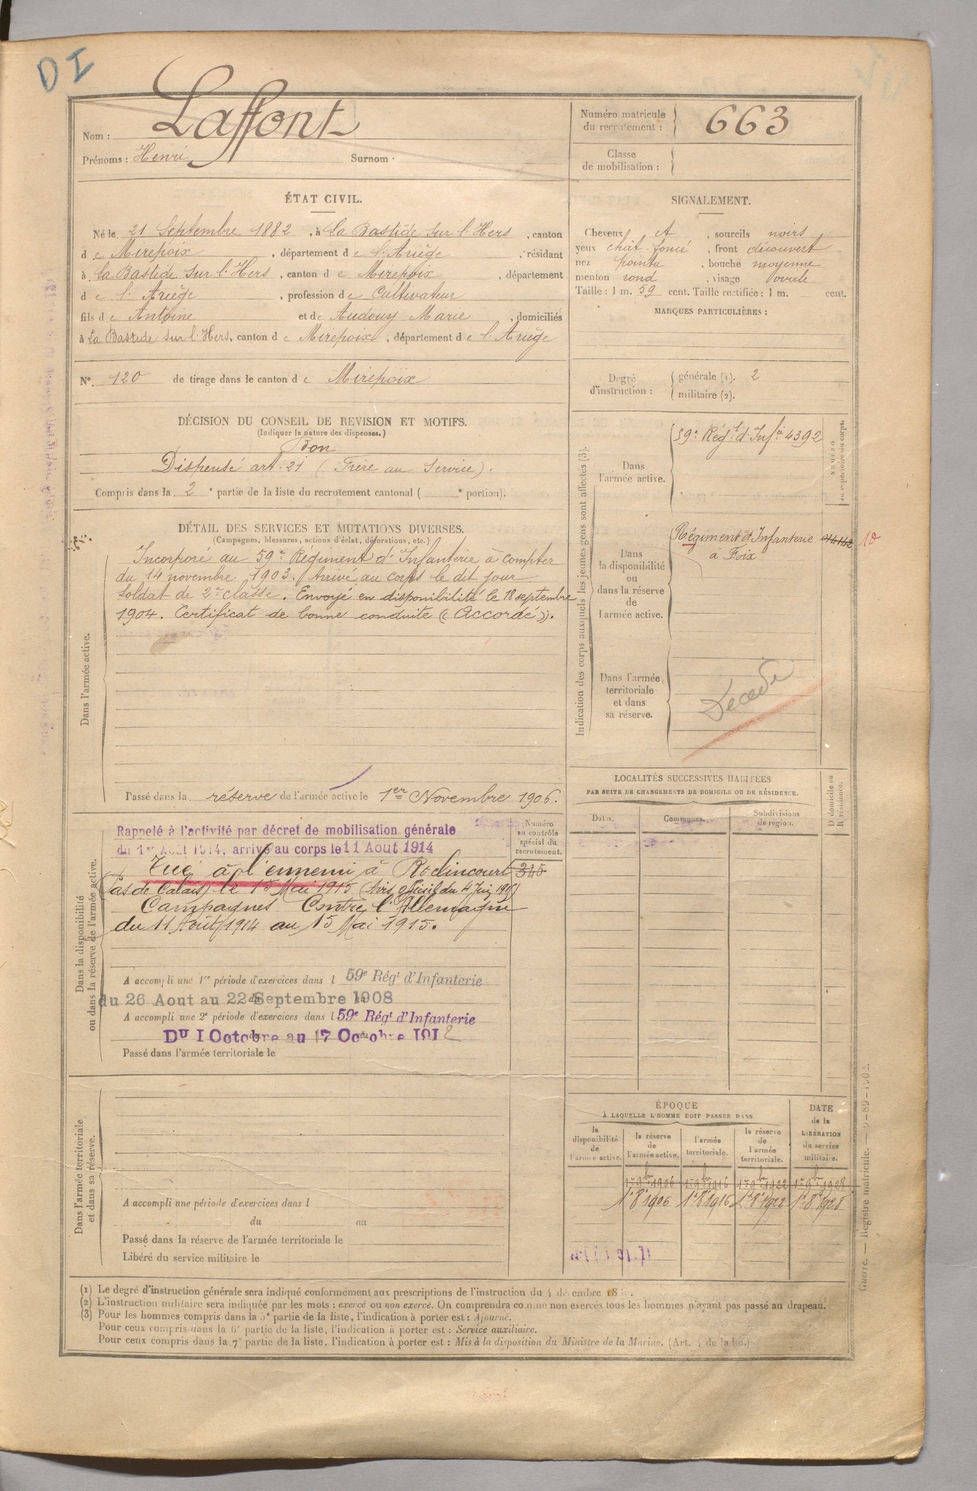 DI
Nom : Laffont
Prénoms : Henri Surnom :
Numéro matricule du recrutement : 663
Classe de mobilisation :
ÉTAT CIVIL.
Né le 21 Septembre 1882, à La Bastide sur l'Hers, canton
de Mirepoix, département de l'Ariège, résidant
à La Bastide sur l'Hers, canton de Mirepoix, département
de l'Ariège, profession de Cultivateur
fils de Antoine et de Audouy Marie, domiciliés
à La Bastide sur l'Hers, canton de Mirepoix, département de l'Ariège
N° 120 de tirage dans le canton de Mirepoix
SIGNALEMENT.
Cheveux et sourcils noirs
yeux chât. foncé, front découvert
nez pointu, bouche moyenne
menton rond, visage ovale
Taille : 1 m. 59 cent. Taille rectifiée : 1 m. cent.
MARQUES PARTICULIÈRES :
Degré d'instruction : générale (1). 2
militaire (2).
DÉCISION DU CONSEIL DE REVISION ET MOTIFS.
(Indiquer la nature des dispenses.)
Bon
Dispensé art. 21 (Frère au Service).
Compris dans la 2e partie de la liste du recrutement cantonal ( e portion).
DÉTAIL DES SERVICES ET MUTATIONS DIVERSES.
(Campagnes, blessures, actions d'éclat, décorations, etc.)
Dans l'armée active.
Incorporé au 59e Régiment d'Infanterie à compter
du 14 novembre 1903. Arrivé au corps le dit jour
soldat de 2e classe. Envoyé en disponibilité le 18 septembre
1904. Certificat de bonne conduite « Accordé ».
Passé dans la réserve de l'armée active le 1er Novembre 1906.
Indication des corps auxquels les jeunes gens sont affectés (3).
Dans l'armée active.
59e Régt d'Infie 4392
Dans la disponibilité ou dans la réserve de l'armée active.
Régiment d'Infanterie
à Foix
10
Dans l'armée territoriale et dans sa réserve.
Décédé
Dans la disponibilité ou dans la réserve de l'armée active.
Numéro au contrôle spécial du recrutement.
345
Rappelé à l'activité par décret de mobilisation générale
du 1er Août 1914, arrivé au corps le 11 Aout 1914
Tué à l'ennemi à Roclincourt
(Pas de Calais) le 15 Mai 1915 (Avis officiel du 4 Juin 1915)
Campagnes Contre l'Allemagne
du 11 Août 1914 au 15 Mai 1915.
A accompli une 1re période d'exercices dans l 59e Régt d'Infanterie
du 26 Aout au 22 Septembre 1908
A accompli une 2e période d'exercices dans l 59e Régt d'Infanterie
Du 1 Octobre au 17 Octobre 1912
Passé dans l'armée territoriale le
LOCALITÉS SUCCESSIVES HABITÉES
PAR SUITE DE CHANGEMENTS DE DOMICILE OU DE RÉSIDENCE.
Dates. Communes. Subdivisions de région. D domicile ou R résidence.
Dans l'armée territoriale et dans sa réserve.
A accompli une période d'exercices dans l
du au
Passé dans la réserve de l'armée territoriale le
Libéré du service militaire le
ÉPOQUE
À LAQUELLE L'HOMME DOIT PASSER DANS
la disponibilité de l'armée active.
la réserve de l'armée active.
l'armée territoriale.
la réserve de l'armée territoriale.
DATE de la LIBÉRATION du service militaire.
1er 8bre 1906 1er 8bre 1916 1er 8bre 1922 1er 8bre 1928
(1) Le degré d'instruction générale sera indiqué conformément aux prescriptions de l'instruction du 4 décembre
(2) L'instruction militaire sera indiquée par les mots : exercé ou non exercé. On comprendra comme non exercés tous les hommes n'ayant pas passé au drapeau.
(3) Pour les hommes compris dans la 5e partie de la liste, l'indication à porter est : Ajourné.
Pour ceux compris dans la 6e partie de la liste, l'indication à porter est : Service auxiliaire.
Pour ceux compris dans la 7e partie de la liste, l'indication à porter est : Mis à la disposition du Ministre de la Marine. (Art. 4 de la loi.)